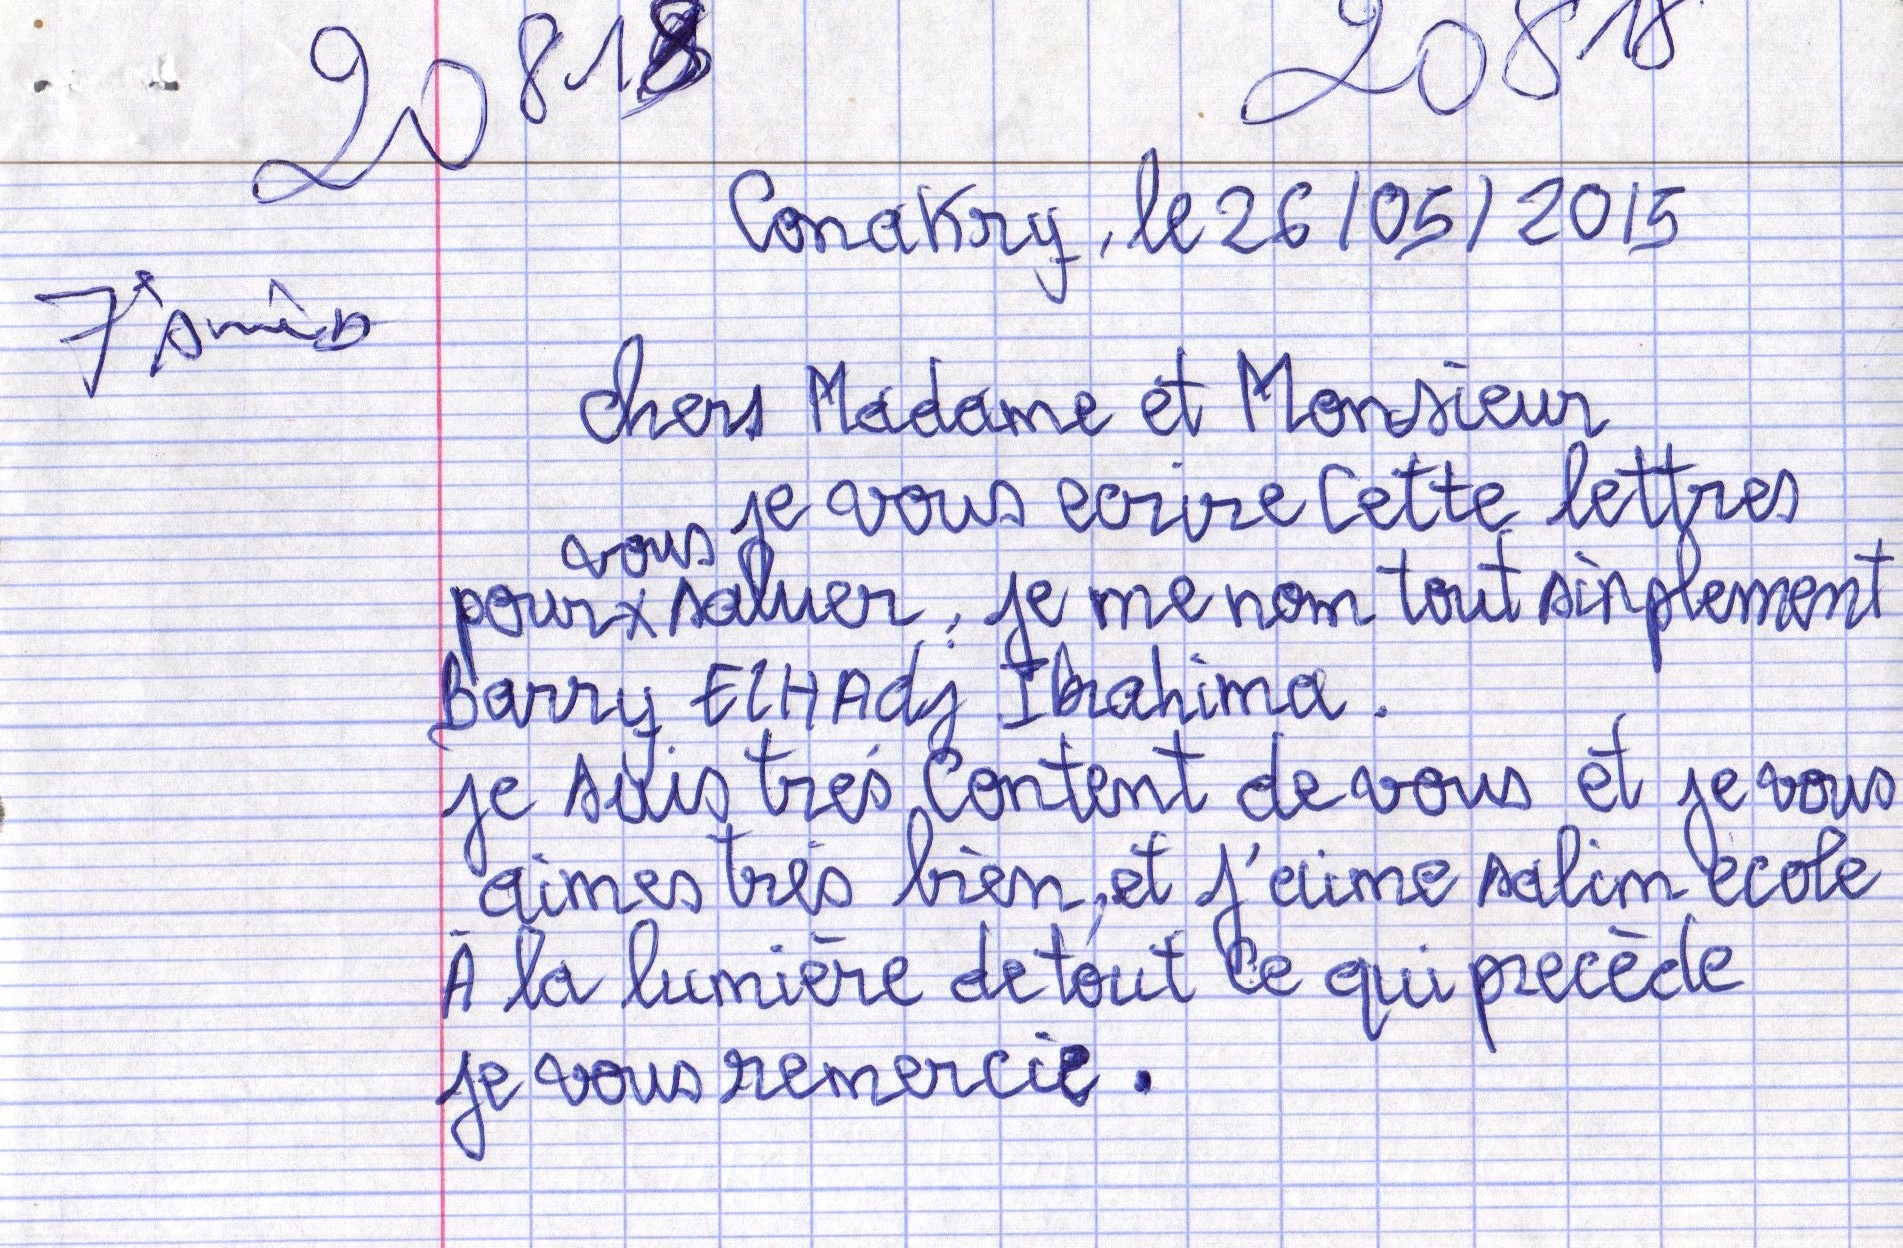 20818 20818
Conakry, le 26/05/2015
7
chers Madame et Monsieur
je vous ecrire cette lettres
vous
pour x saluer, je me nom tout sinplement
Barry ElHAdj Ibrahima.
je suis trés content de vous et je vous
aimes trés bien, et j'aime salim école
À la lumière de tout ce qui precède
je vous remercie.